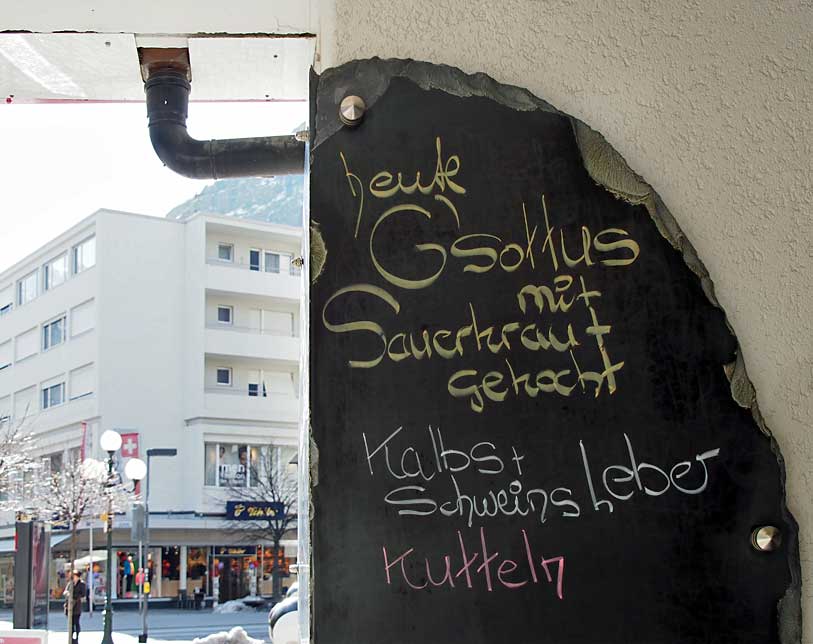 heute
G'sottus
mit
Sauerkraut
gekocht
Kalbs +
Schweins Leber
Kutteln